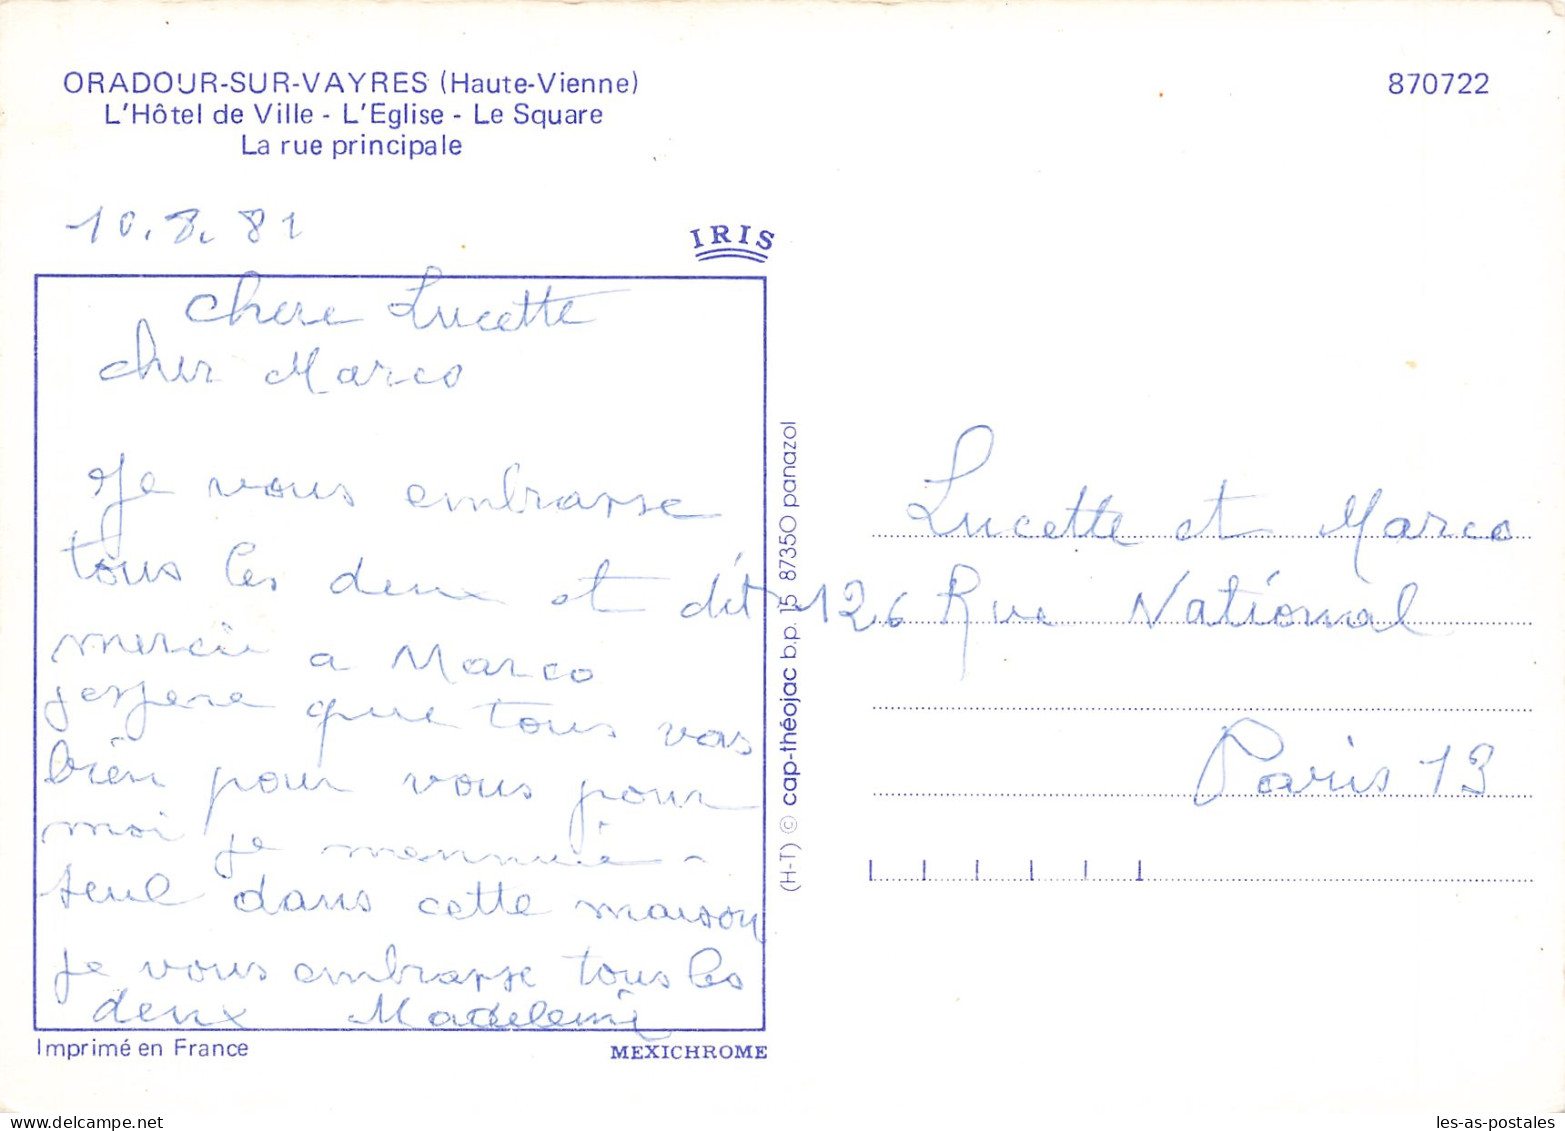 ORADOUR-SUR-VAYRES (Haute-Vienne)
L'Hôtel de Ville - L'Eglise - Le Square
La rue principale
870722
10.8.81
IRIS
chere Lucette
cher Marco
Je vous embrasse
tous les deux et dit
mercie a Marco
jespere que tous vas
bien pour vous pour
moi je mennuie
seul dans cette maison
je vous embrasse tous les
deux Madeleine
Imprimé en France
MEXICHROME
(H-T) © cap-théojac b.p. 15 87350 panazol
Lucette et Marco
126 Rue National
Paris 13
les-as-postales